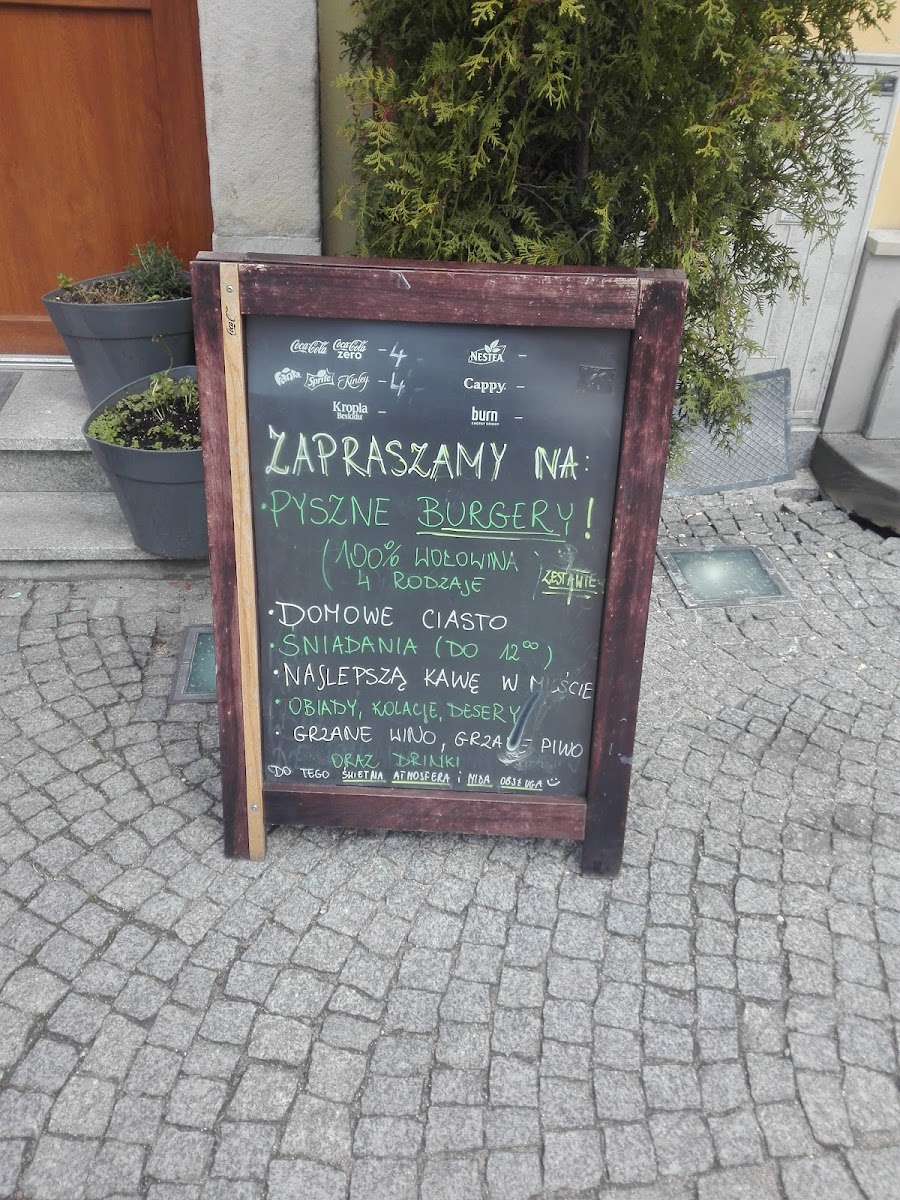 Coca-Cola Coca-Cola zero - 4 NESTEA -
Fanta Sprite Kinley - 4 Cappy -
Kropla Beskidu - burn ENERGY DRINK -
ZAPRASZAMY NA:
• PYSZNE BURGERY!
(100% WOŁOWINA
4 RODZAJE) ZESTAWIE
• DOMOWE CIASTO
• ŚNIADANIA (DO 12⁰⁰)
• NAJLEPSZĄ KAWĘ W MIEŚCIE
• OBIADY, KOLACJE, DESERY
• GRZANE WINO, GRZANE PIWO
ORAZ DRINKI
DO TEGO ŚWIETNA ATMOSFERA i MIŁA OBSŁUGA
Coca-Cola